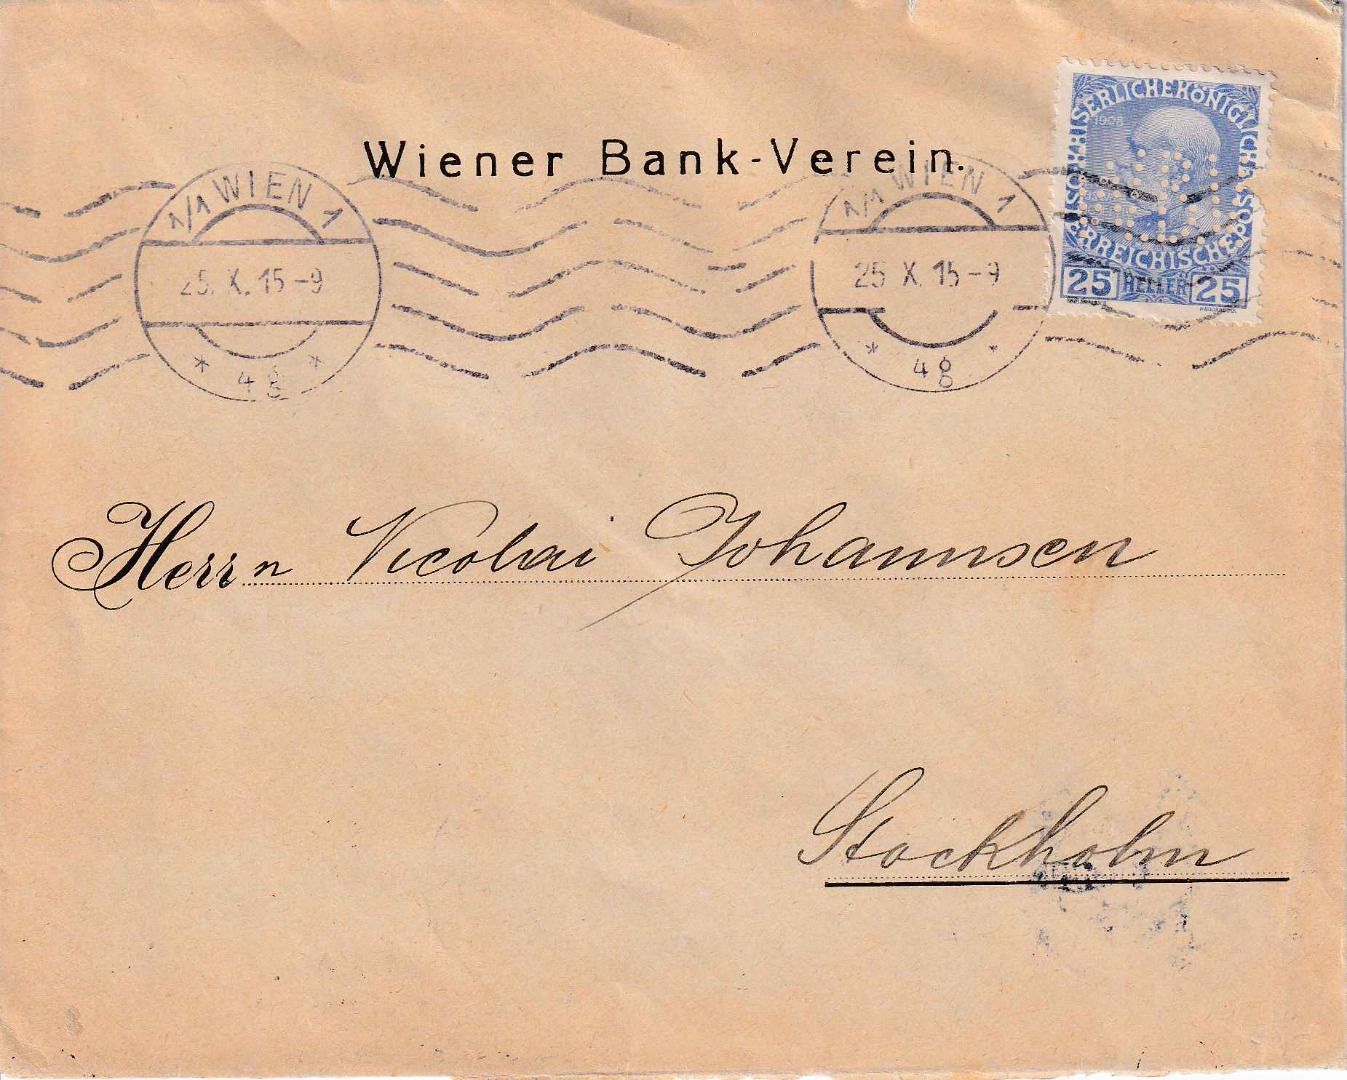 KAISERLICHEKÖNIGLICHE ÖSTERREICHISCHE POST
1908
25 HELLER 25
Wiener Bank-Verein.
1/1 WIEN 1
25. X. 15-9
* 4g *
1/1 WIEN 1
25 X. 15-9
* 4g *
Herrn Nicolai Johannsen
Stockholm